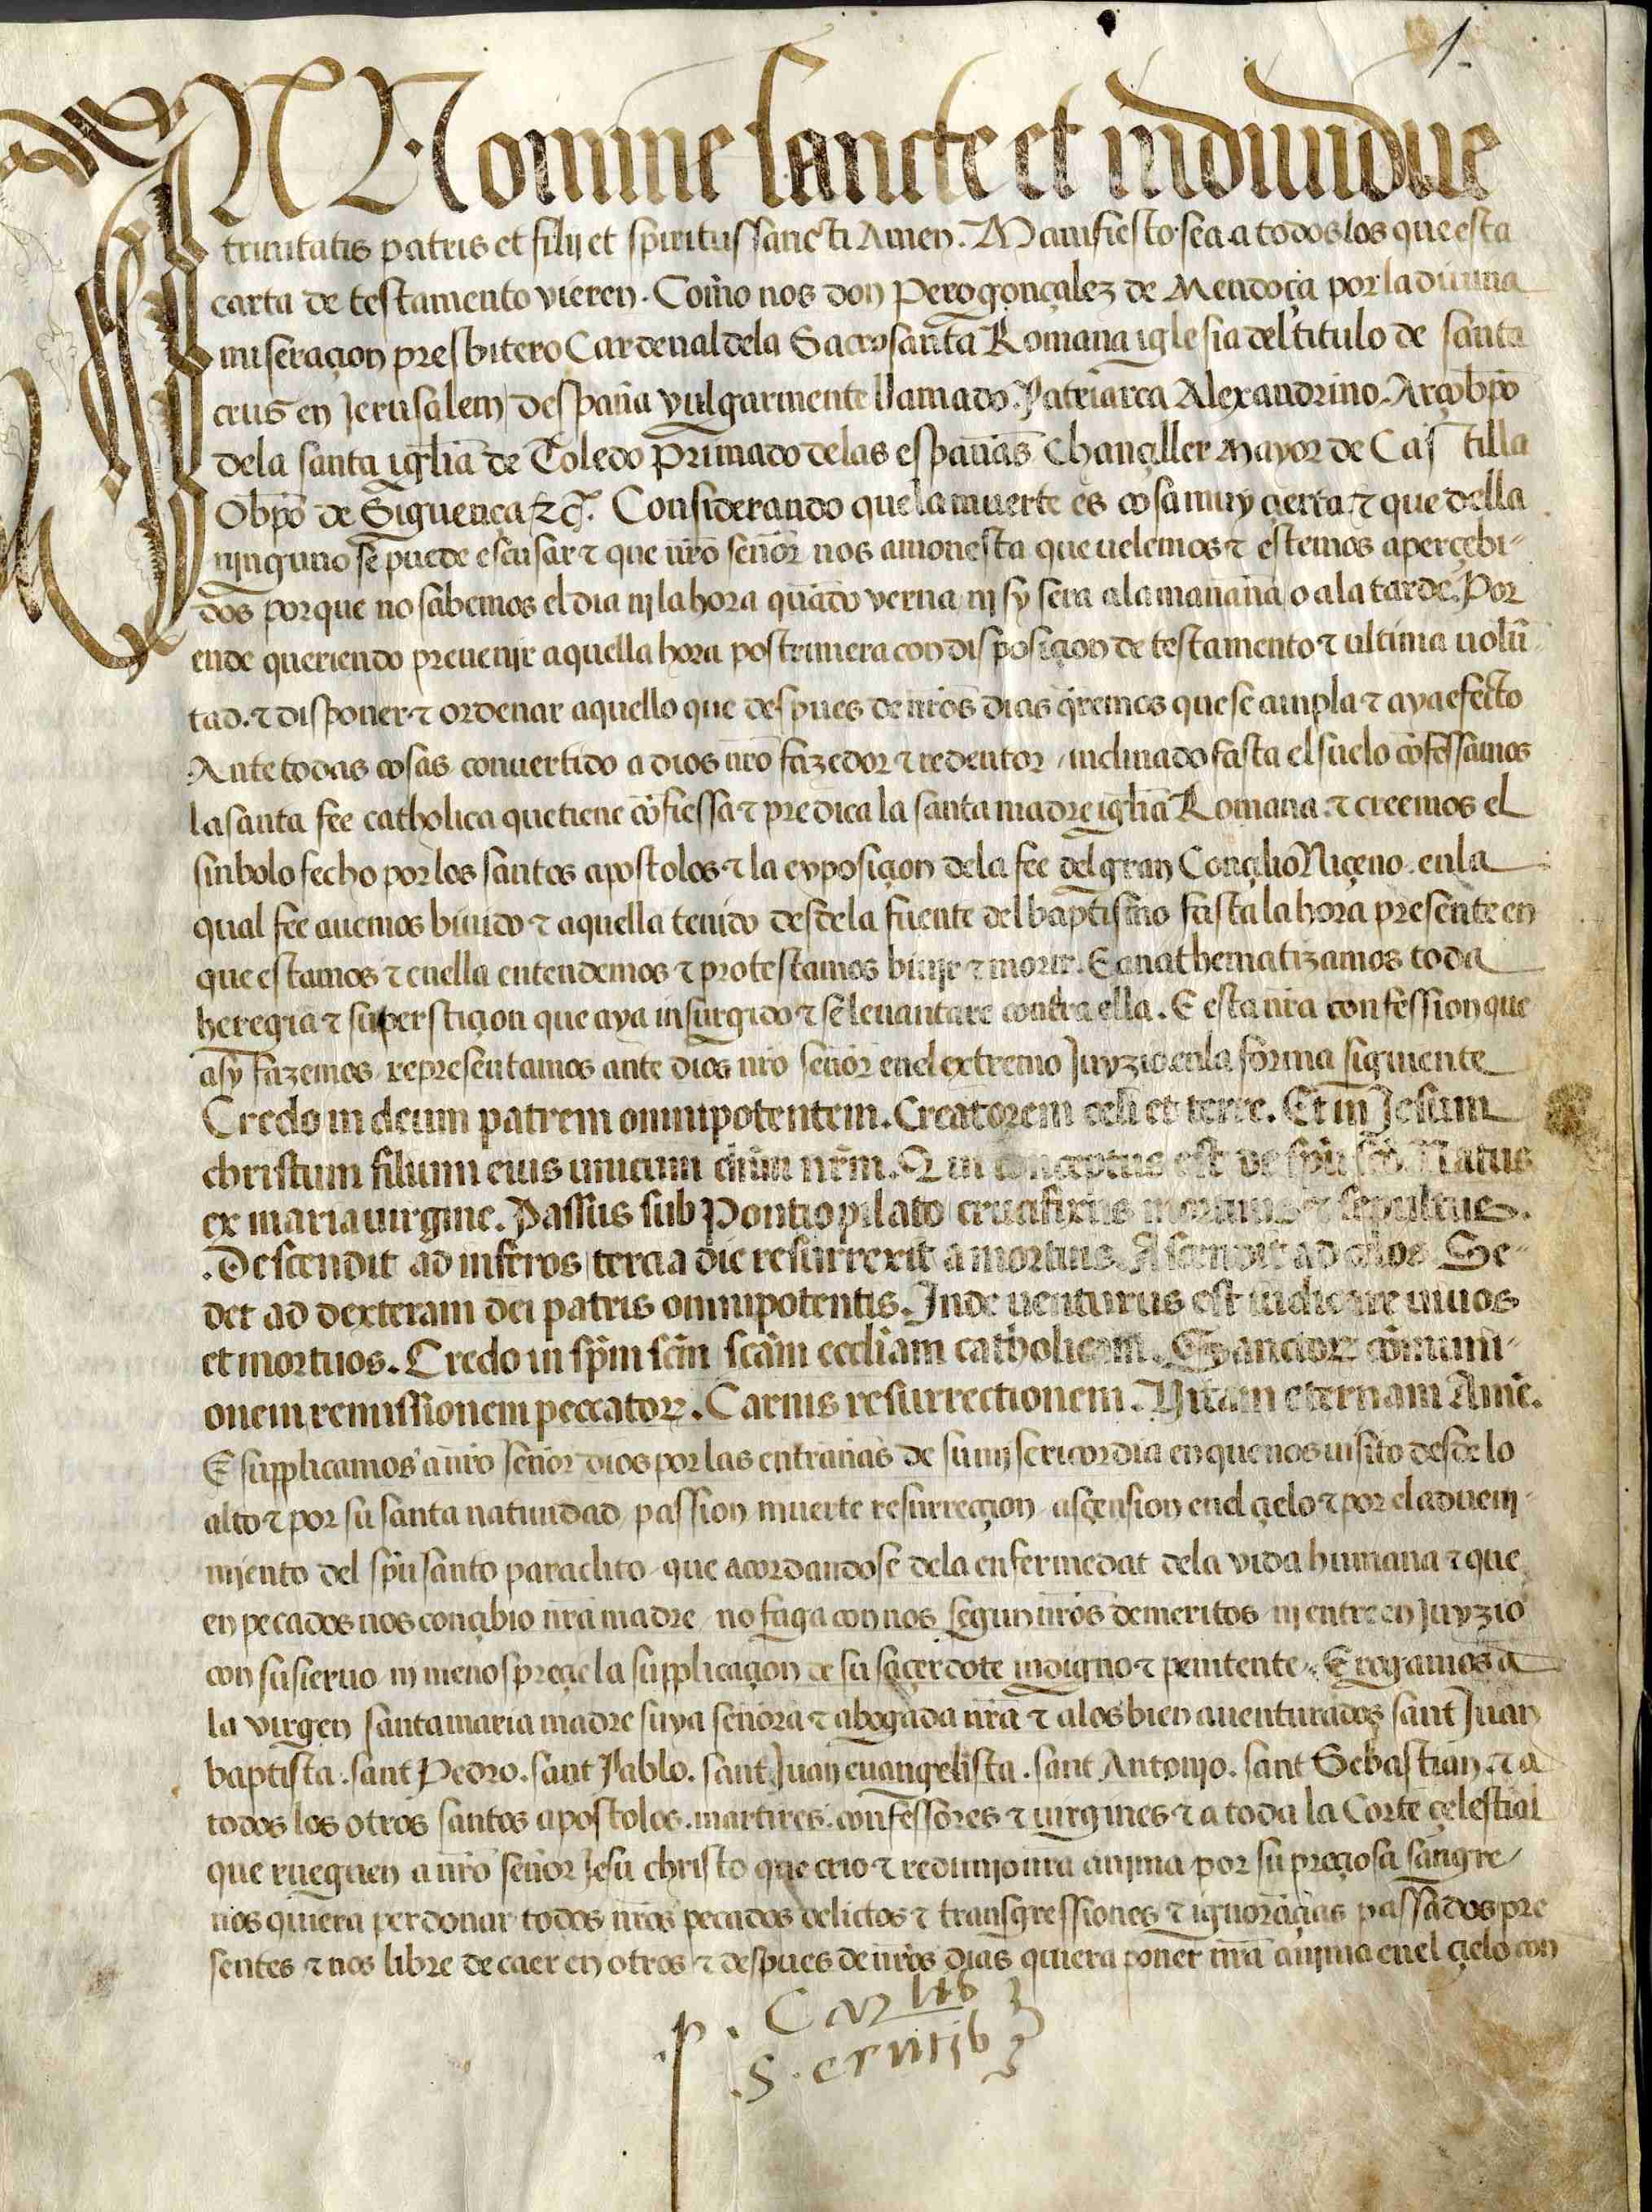 1.
IN Nomine sancte et indiuidue
trinitatis patris et filij et spiritussancti Amen. Manifiesto sea a todos los que esta
carta de testamento vieren. Com̃o nos don Pero gonçalez de Mendoça por la diuina
miseraçion presbitero Cardenal dela Sacrosanta Romana iglesia del titulo de santa
crus en Jerusalem despan̄a vulgarmente llamado. Patriarca Alexandrino. Arçobp̄o
dela santa igl̄ia de Toledo Primado delas espan̄as Chançiller mayor de Castilla
Obp̄o de Siguença ⁊ c̃. Considerando que la muerte es cosa muy çierta. ⁊ que della
njnguno se puede escusar ⁊ que nr̄o sen̄or nos amonesta que uelemos ⁊ estemos aperçebi-
dos porque no sabemos el dia nj la hora qūado verna nj sy sera ala man̄ana o ala tarde. Por
ende queriendo preuenjr aquella hora postrimera con disposiçion de testamento ⁊ ultima uolū-
tad. ⁊ disponer ⁊ ordenar aquello que despues de nr̄os dias q̄remos que se cunpla ⁊ aya efecto
Ante todas cosas conuertido a dios nr̄o fazedor ⁊ redentor / inclinado fasta el suelo cōfessamos
la santa fee catholica que tiene cōfiessa ⁊ predica la santa madre igl̄ia Romana. ⁊ creemos el
sinbolo fecho por los santos apostolos ⁊ la exposiçion dela fee del gran Conçilio Niçeno. en la
qual fee auemos biuido ⁊ aquella tenido desde la fuente del baptismo fasta la hora presente en
que estamos ⁊ en ella entendemos ⁊ protestamos biuir ⁊ morir. E anathematizamos toda
heregia ⁊ superstiçion que aya insurgido ⁊ se leuantare contra ella. E esta nr̄a confession que
asy fazemos representamos ante dios nr̄o sen̄or en el extremo Juyzio en la forma siguiente
Credo in deum patrem omnipotentem. Creatorem celi et terre. Et in Jesum
christum filium eius unicum dn̄m nr̄m. Qui conceptus est de sp̄u sc̄o. Natus
ex maria uirgine. Passus sub Pontio pilato crucifixus mortuus ⁊ sepultus.
Descendit ad inferos tercia die resurrexit a mortuis. Ascendit ad celos. Se-
det ad dexteram dei patris omnipotentis. Inde uenturus est iudicare uiuos
et mortuos. Credo in sp̄m sc̄m sc̄am eccl̄iam catholicam. Sanctoꝝ cōmuni-
onem remissionem peccatoꝝ. Carnis resurrectionem. Vitam eternam Amē.
E supplicamos a nr̄o sen̄or dios por las entran̄as de su mjsericordia en que nos uisito desde lo
alto ⁊ por su santa natiuidad / passion muerte resurreçion / asçension en el çielo ⁊ por el aduenj-
mjento del sp̄u santo paraclito / que acordandose dela enfermedat dela vida humana ⁊ que
en pecados nos conçibio nr̄a madre / no faga con nos segun nr̄os demeritos nj entre en juyzio
con su sieruo nj menospreçie la supplicaçion de su saçerdote indigno ⁊ penitente. E rogamos a
la virgen santa maria madre suya sen̄ora ⁊ abogada nr̄a ⁊ alos bien auenturados sant Juan
baptista. sant Pedro. sant Pablo. sant Juan euangelista. sant Antonjo. sant Sebastian. ⁊ a
todos los otros santos apostolos. martires. confessores ⁊ uirgines ⁊ a toda la Corte çelestial
que rueguen a nr̄o sen̄or Jesu christo que crio ⁊ redimjo nr̄a anjma por su preçiosa sangre /
nos quiera perdonar todos nr̄os pecados delictos ⁊ transgressiones ⁊ ignorāçias passados pre
sentes ⁊ nos libre de caer en otros ⁊ despues de nr̄os dias quiera poner nr̄a anjma en el çielo con
p. Carlis
S. crucis